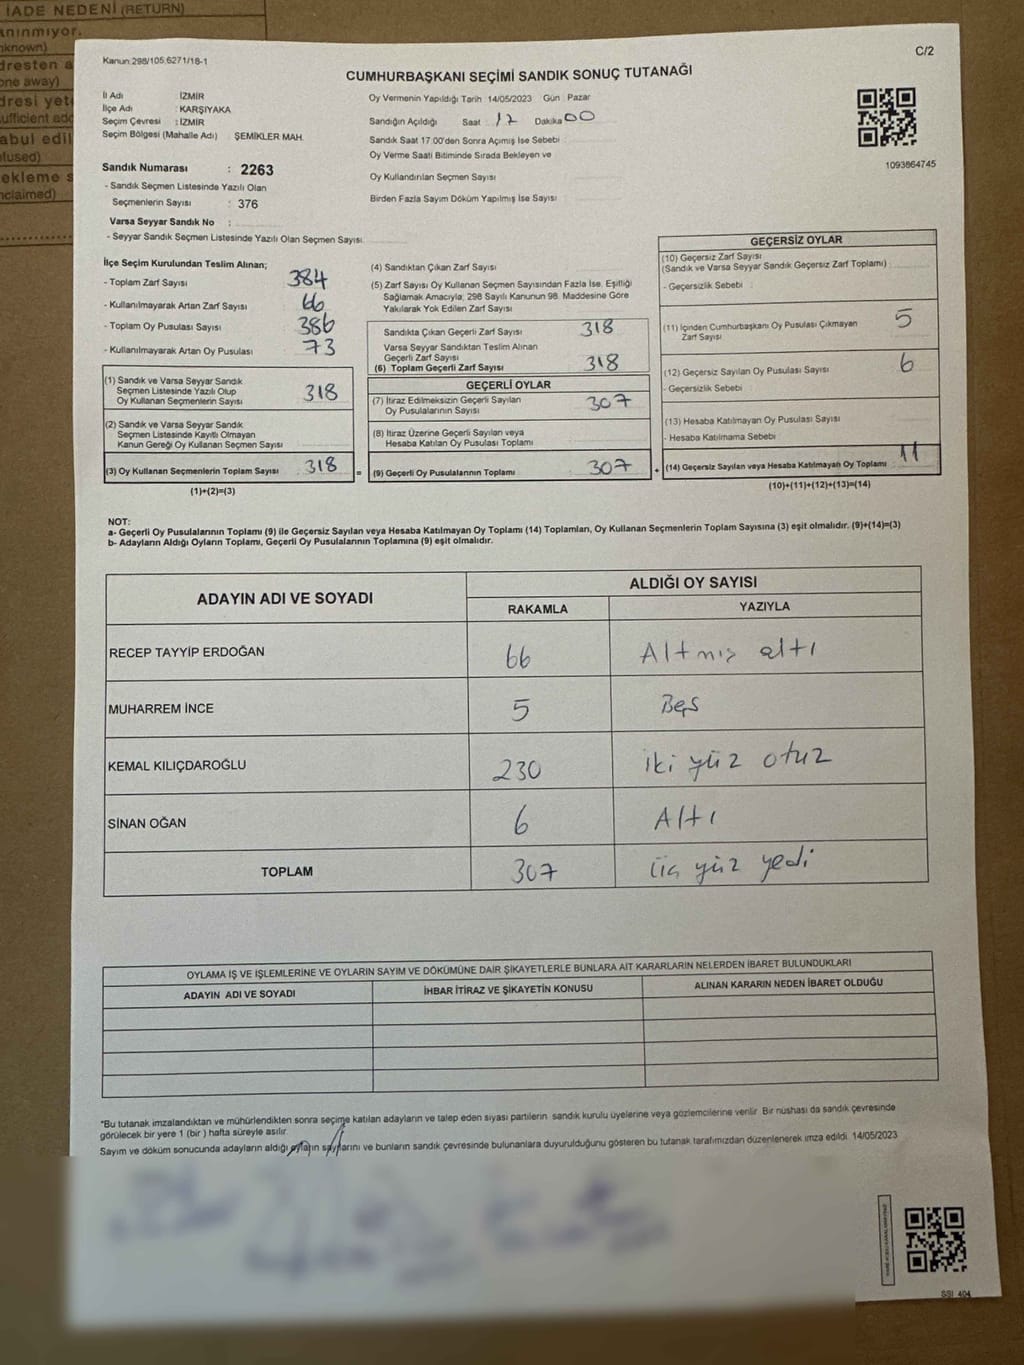 İADE NEDENİ (RETURN)
anınmıyor.
nknown)
dresten a
one away)
dresi yet
sufficient add
abul edil
fused)
ekleme s
nclaimed)
Kanun:298/105,6271/18-1
C/2
CUMHURBAŞKANI SEÇİMİ SANDIK SONUÇ TUTANAĞI
İl Adı : İZMİR
İlçe Adı : KARŞIYAKA
Seçim Çevresi : İZMİR
Seçim Bölgesi (Mahalle Adı) : ŞEMİKLER MAH.
Sandık Numarası : 2263
- Sandık Seçmen Listesinde Yazılı Olan
Seçmenlerin Sayısı : 376
Varsa Seyyar Sandık No :
- Seyyar Sandık Seçmen Listesinde Yazılı Olan Seçmen Sayısı:
Oy Vermenin Yapıldığı Tarih 14/05/2023 Gün Pazar
Sandığın Açıldığı Saat 17 Dakika 00
Sandık Saat 17:00'den Sonra Açımış İse Sebebi
Oy Verme Saati Bitiminde Sırada Bekleyen ve
Oy Kullandırılan Seçmen Sayısı
Birden Fazla Sayım Döküm Yapılmış İse Sayısı
1093864745
İlçe Seçim Kurulundan Teslim Alınan;
- Toplam Zarf Sayısı : 384
- Kullanılmayarak Artan Zarf Sayısı : 66
- Toplam Oy Pusulası Sayısı : 386
- Kullanılmayarak Artan Oy Pusulası : 73
(1) Sandık ve Varsa Seyyar Sandık
Seçmen Listesinde Yazılı Olup
Oy Kullanan Seçmenlerin Sayısı : 318
(2) Sandık ve Varsa Seyyar Sandık
Seçmen Listesinde Kayıtlı Olmayan
Kanun Gereği Oy Kullanan Seçmen Sayısı :
(3) Oy Kullanan Seçmenlerin Toplam Sayısı : 318
(1)+(2)=(3)
=
(4) Sandıktan Çıkan Zarf Sayısı
(5) Zarf Sayısı Oy Kullanan Seçmen Sayısından Fazla İse, Eşitliği
Sağlamak Amacıyla, 298 Sayılı Kanunun 98. Maddesine Göre
Yakılarak Yok Edilen Zarf Sayısı
Sandıkta Çıkan Geçerli Zarf Sayısı 318
Varsa Seyyar Sandıktan Teslim Alınan
Geçerli Zarf Sayısı
(6) Toplam Geçerli Zarf Sayısı 318
GEÇERLİ OYLAR
(7) İtiraz Edilmeksizin Geçerli Sayılan
Oy Pusulalarının Sayısı 307
(8) İtiraz Üzerine Geçerli Sayılan veya
Hesaba Katılan Oy Pusulası Toplamı
(9) Geçerli Oy Pusulalarının Toplamı 307
+
GEÇERSİZ OYLAR
(10) Geçersiz Zarf Sayısı
(Sandık ve Varsa Seyyar Sandık Geçersiz Zarf Toplamı)
- Geçersizlik Sebebi :
(11) İçinden Cumhurbaşkanı Oy Pusulası Çıkmayan
Zarf Sayısı 5
(12) Geçersiz Sayılan Oy Pusulası Sayısı 6
- Geçersizlik Sebebi
(13) Hesaba Katılmayan Oy Pusulası Sayısı
- Hesaba Katılmama Sebebi
(14) Geçersiz Sayılan veya Hesaba Katılmayan Oy Toplamı 11
(10)+(11)+(12)+(13)=(14)
NOT:
a- Geçerli Oy Pusulalarının Toplamı (9) ile Geçersiz Sayılan veya Hesaba Katılmayan Oy Toplamı (14) Toplamları, Oy Kullanan Seçmenlerin Toplam Sayısına (3) eşit olmalıdır. (9)+(14)=(3)
b- Adayların Aldığı Oyların Toplamı, Geçerli Oy Pusulalarının Toplamına (9) eşit olmalıdır.
ADAYIN ADI VE SOYADI
ALDIĞI OY SAYISI
RAKAMLA YAZIYLA
RECEP TAYYİP ERDOĞAN 66 Altmış altı
MUHARREM İNCE 5 Beş
KEMAL KILIÇDAROĞLU 230 iki yüz otuz
SİNAN OĞAN 6 Altı
TOPLAM 307 üç yüz yedi
OYLAMA İŞ VE İŞLEMLERİNE VE OYLARIN SAYIM VE DÖKÜMÜNE DAİR ŞİKAYETLERLE BUNLARA AİT KARARLARIN NELERDEN İBARET BULUNDUKLARI
ADAYIN ADI VE SOYADI İHBAR İTİRAZ VE ŞİKAYETİN KONUSU ALINAN KARARIN NEDEN İBARET OLDUĞU
*Bu tutanak imzalandıktan ve mühürlendikten sonra seçime katılan adayların ve talep eden siyası partilerin sandık kurulu üyelerine veya gözlemcilerine verilir. Bir nüshası da sandık çevresinde
görülecek bir yere 1 (bir) hafta süreyle asılır.
Sayım ve döküm sonucunda adayların aldığı oyların sayılarını ve bunların sandık çevresinde bulunanlara duyurulduğunu gösteren bu tutanak tarafımızdan düzenlenerek imza edildi. 14/05/2023
SSI 404